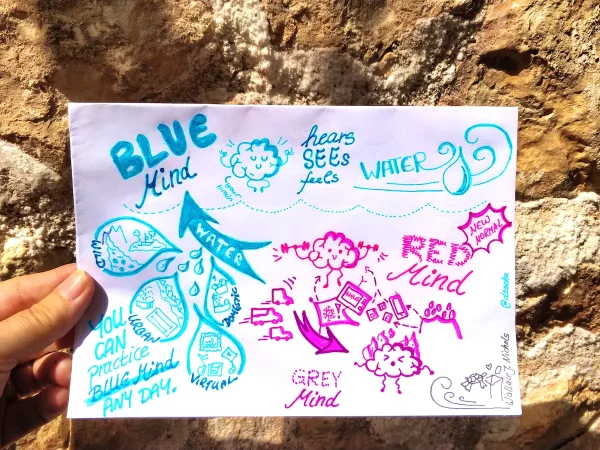 BLUE
Mind
hears
SEEs
feels
WATER
your
brain
WATER
WILD
URBAN
DOMESTIC
VIRTUAL
YOU
CAN
practice
BLUE Mind
ANY DAY.
NEW
NORMAL
RED
Mind
GREY
Mind
Wallace J. Nichols